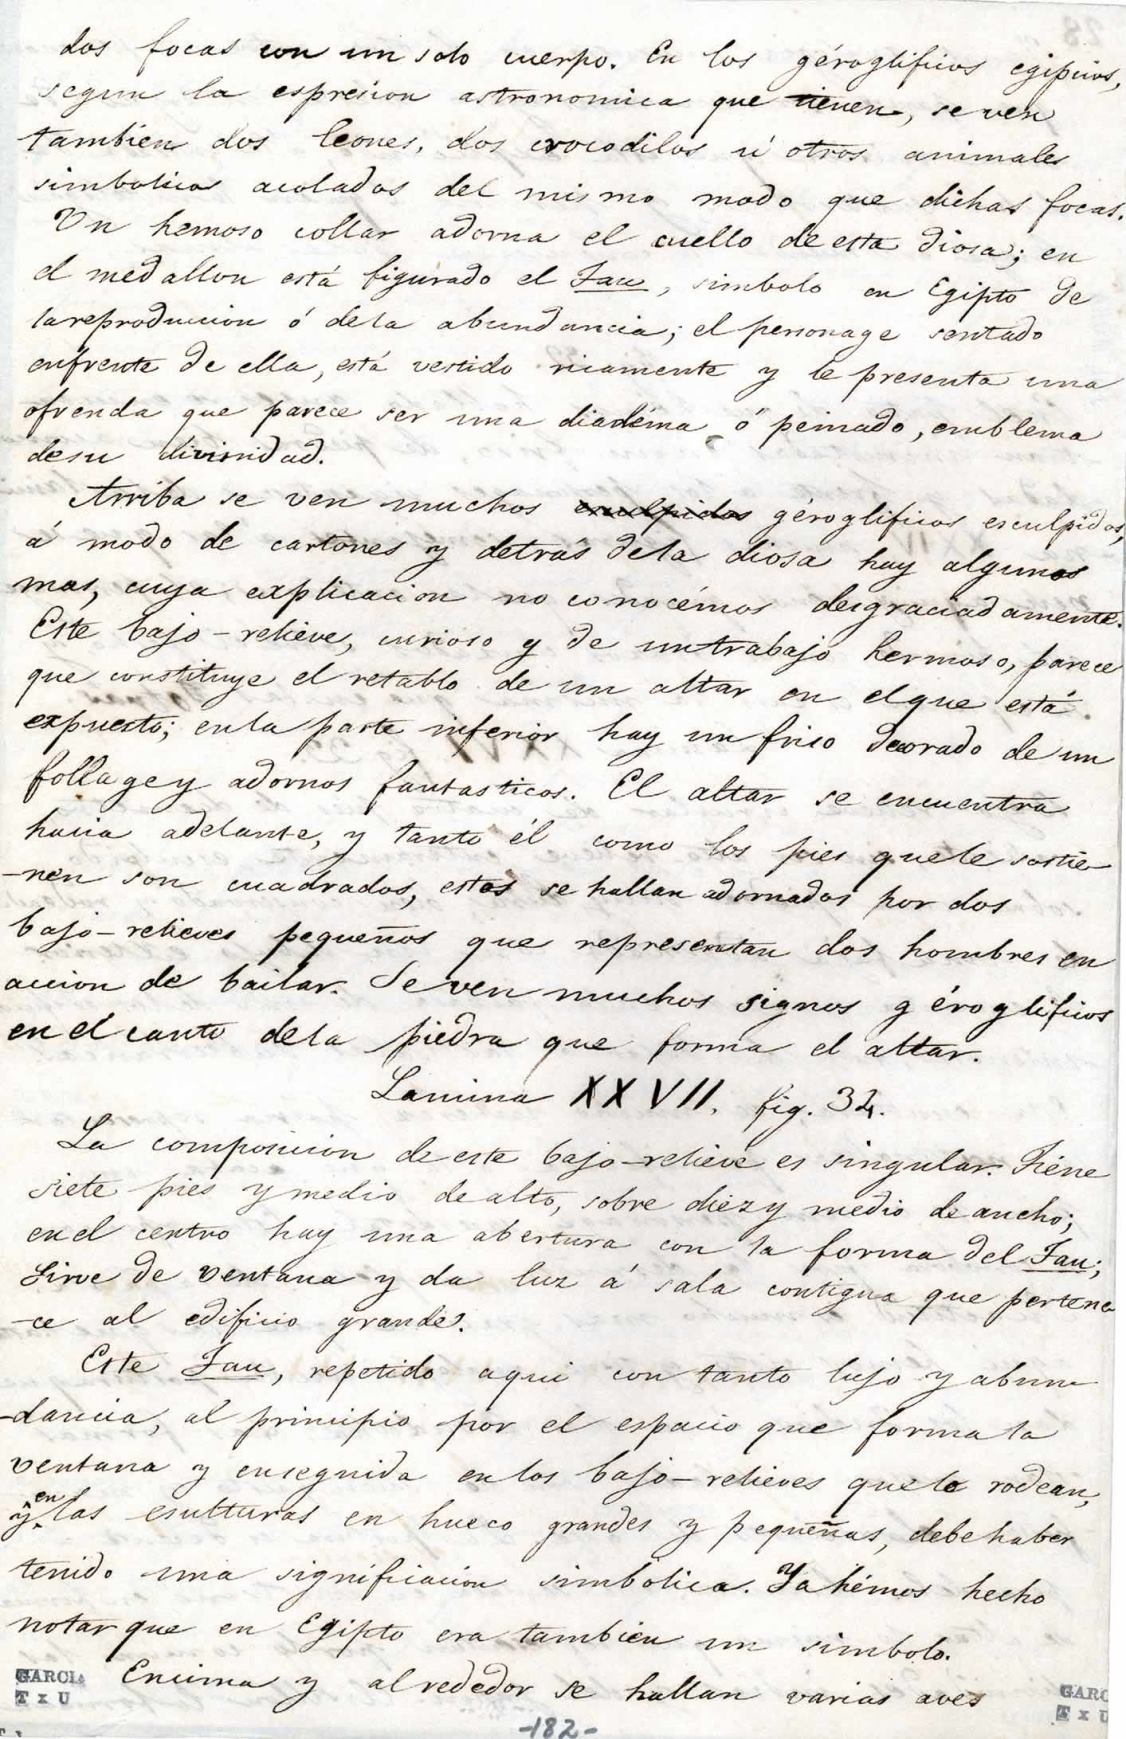 dos focas con un solo cuerpo. En los géroglificos egipcios,
segun la espresion astronomica que tienen, se ven
tambien dos leones, dos crocodilos ú otros animales
simbolicos acolados del mismo modo que dichas focas.
Un hemoso collar adorna el cuello de esta diosa; en
el medallon está figurado el Tau, simbolo en Egipto de
la reproduccion ó de la abundancia; el personage sentado
enfrente de ella, está vestido ricamente y le presenta una
ofrenda que parece ser una diadéma ó peinado, emblema
de su divinidad.
Arriba se ven muchos esculpidos géroglificos esculpidos,
á modo de cartones y detrás de la diosa hay algunos
mas, cuya explicacion no conocémos desgraciadamente.
Este bajo-reliéve, curioso y de un trabajo hermoso, parece
que constituye el retablo de un altar en el que está
expuesto; en la parte inferior hay un friso decorado de un
follage y adornos fantasticos. El altar se encuentra
hacia adelante, y tanto él como los pies que le sostie-
-nen son cuadrados, estos se hallan adornados por dos
bajo-relieves pequeños que representan dos hombres en
accion de bailar. Se ven muchos signos géroglificos
en el canto de la piedra que forma el altar.
Lamina XXVII. fig. 34.
La composicion de este bajo-reliéve es singular. Tiéne
siete pies y medio de alto, sobre diez y medio de ancho;
en el centro hay una abertura con la forma del Tau;
sirve de ventana y da luz á sala contigua que pertene-
-ce al edificio grande.
Este Tau, repetido aqui con tanto lujo y abun-
-dancia, al principio por el espacio que forma la
ventana y enseguida en los bajo-relieves que le rodean,
y en las esculturas en hueco grandes y pequeñas, debe haber
tenido una significacion simbolica. Ya hémos hecho
notar que en Egipto era tambien un simbolo.
Encima y alrededor se hallan varias aves
GARCIA
T x U
GARC
T x U
-182-